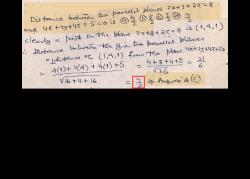 Distance between two parallel planes 2x+y+2z=8
and 4x+2y+4z+5=0 is
clearly a point on the plane 2x+y+2z=8 is (1,4,1)
∴ Distance between the two parallel planes
= Distance of (1,4,1) from the plane 4x+2y+4z+5=0
= 4(1)+2(4)+4(1)+5 / √16+4+16 = 4+8+4+5 / √36 = 21/6
= 7/2 ⇒ Answer is (C)